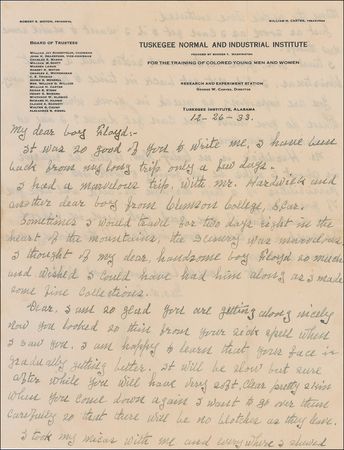 ROBERT R. MOTON, PRINCIPAL
WILLIAM H. CARTER, TREASURER
BOARD OF TRUSTEES
TUSKEGEE NORMAL AND INDUSTRIAL INSTITUTE
FOUNDED BY BOOKER T. WASHINGTON
FOR THE TRAINING OF COLORED YOUNG MEN AND WOMEN
RESEARCH AND EXPERIMENT STATION
GEORGE W. CARVER, DIRECTOR
TUSKEGEE INSTITUTE, ALABAMA
12-26-33.
My dear boy Floyd:-
It was so good of you to write me, I have been
back from my long trip only a few days.
I had a marvelous trip, with Mr. Hardwick and
another dear boy from Clemson College, S.Car.
Sometimes I would travel for two days right in the
heart of the mountains, the scenery was marvelous
I thought of my dear, handsome boy Floyd so much
and wished I could have had him along as I made
some fine collections.
Dear, I am so glad you are getting along nicely
now you looked so thin from your sick spell when
I saw you. I am happy to learn that your face is
gradually getting better. It will be slow but sure
after while you will have very soft, clear pretty skin
When you come down again I want to go over them
carefully so that there will be no blotches as they leave.
I took my micas with me and everywhere I showed